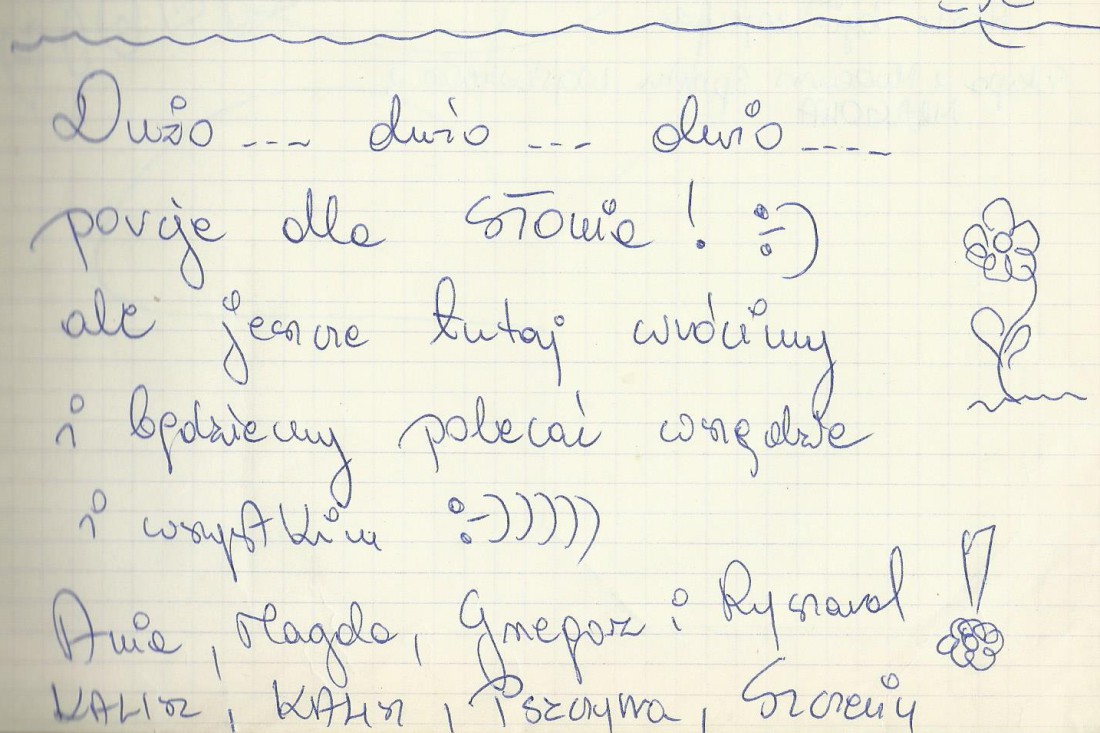 Dużo --- dużo --- dużo ----
porcje dla słonia ! :-)
ale jeszcze tutaj wrócimy
i będziemy polecać wszędzie
i wszystkim :-)))))
Ania, Magda, Grzegorz i Ryszard
KALISZ, KALISZ, Pszczyna,